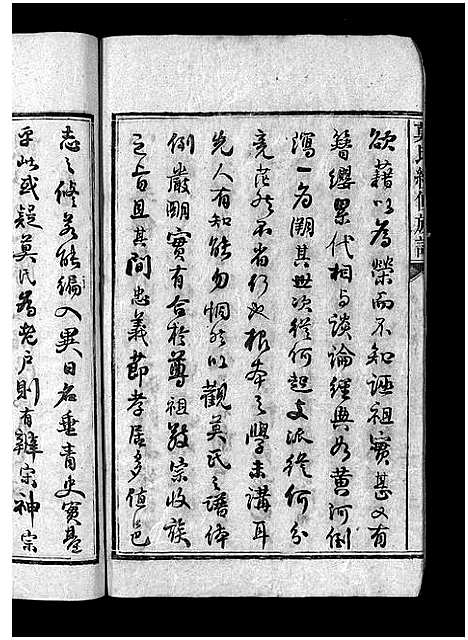 欲藉以為榮而不知誣祖實甚又有
簪纓累代相與談論經典如黃河倒
瀉一為溯其世次從何起支派從何分
竟茫然不省行必根本之學未講耳
先人有知能勿恫然以觀莫氏之譜体
例嚴明實有合於尊祖敬宗收族
之旨且其間忠義節孝居多值邑
志之修若能編入異日名垂青史實基
乎此或疑莫氏為老户則有雜宗神宗
莫氏續修族譜